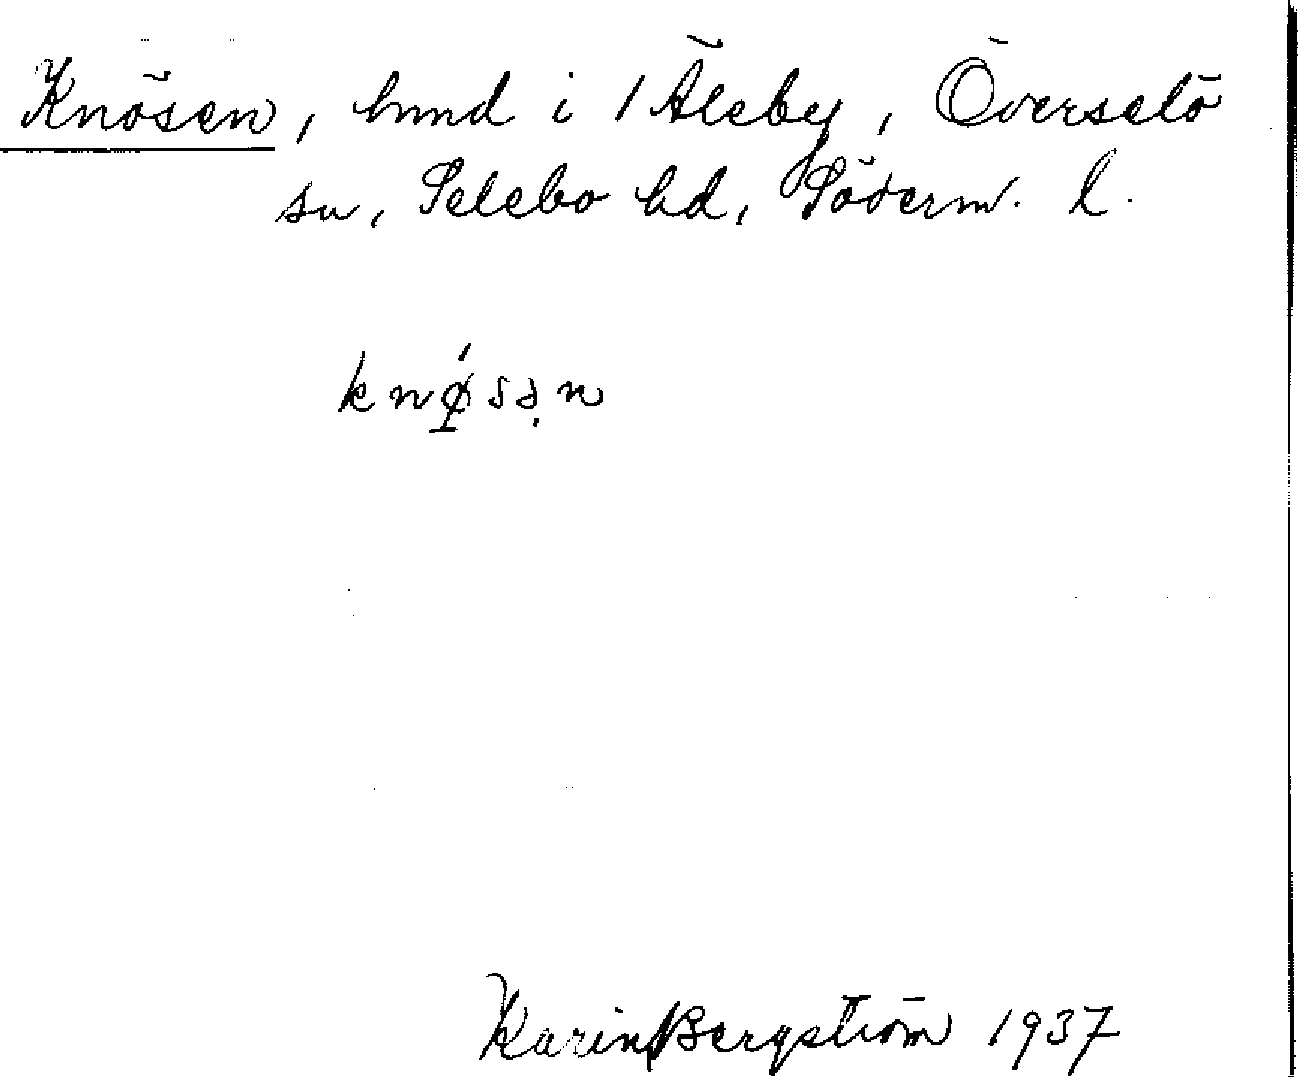 Knösen, hmd i /Äleby, Överselö
sn, Selebo hd, Söderm. l.
knǿsə̣n
Karin Bergström 1937